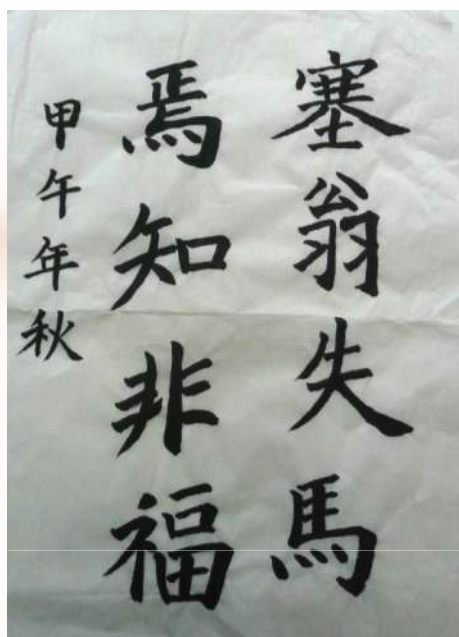 塞翁失馬
焉知非福
甲午年秋